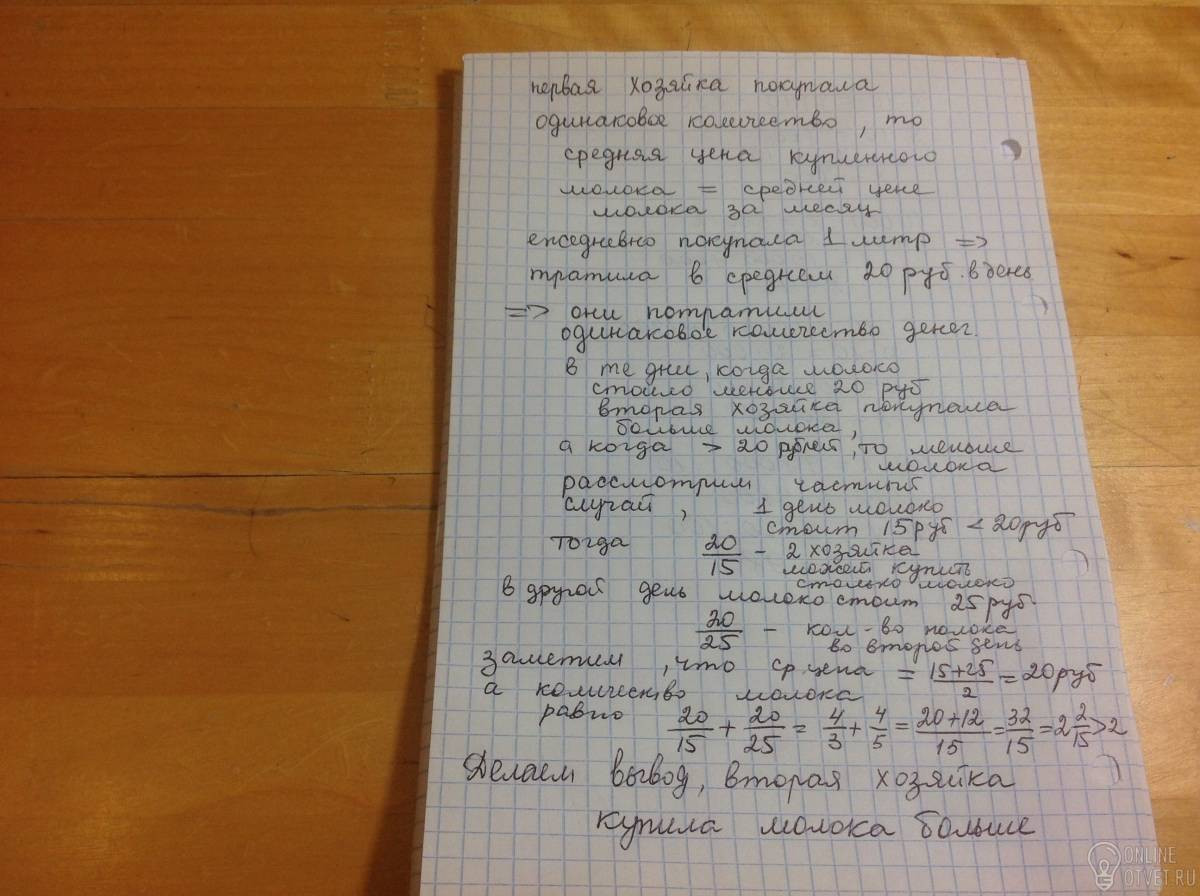 первая хозяйка покупала
одинаковое количество, то
средняя цена купленного
молока = средней цене
молока за месяц
ежедневно покупала 1 литр =>
тратила в среднем 20 руб. в день
=> они потратили
одинаковое количество денег.
в те дни, когда молоко
стоило меньше 20 руб
вторая хозяйка покупала
больше молока,
а когда > 20 рублей, то меньше
молока
рассмотрим частный
случай, 1 день молоко
стоит 15 руб < 20 руб
тогда 20/15 - 2 хозяйка
может купить
столько молоко
в другой день молоко стоит 25 руб.
20/25 - кол-во молока
во второй день
заметим, что ср. цена = (15+25)/2 = 20 руб
а количество молока
равно 20/15 + 20/25 = 4/3 + 4/5 = (20+12)/15 = 32/15 = 2 2/15 > 2
Делаем вывод, вторая хозяйка
купила молока больше
ONLINE
OTVET.RU